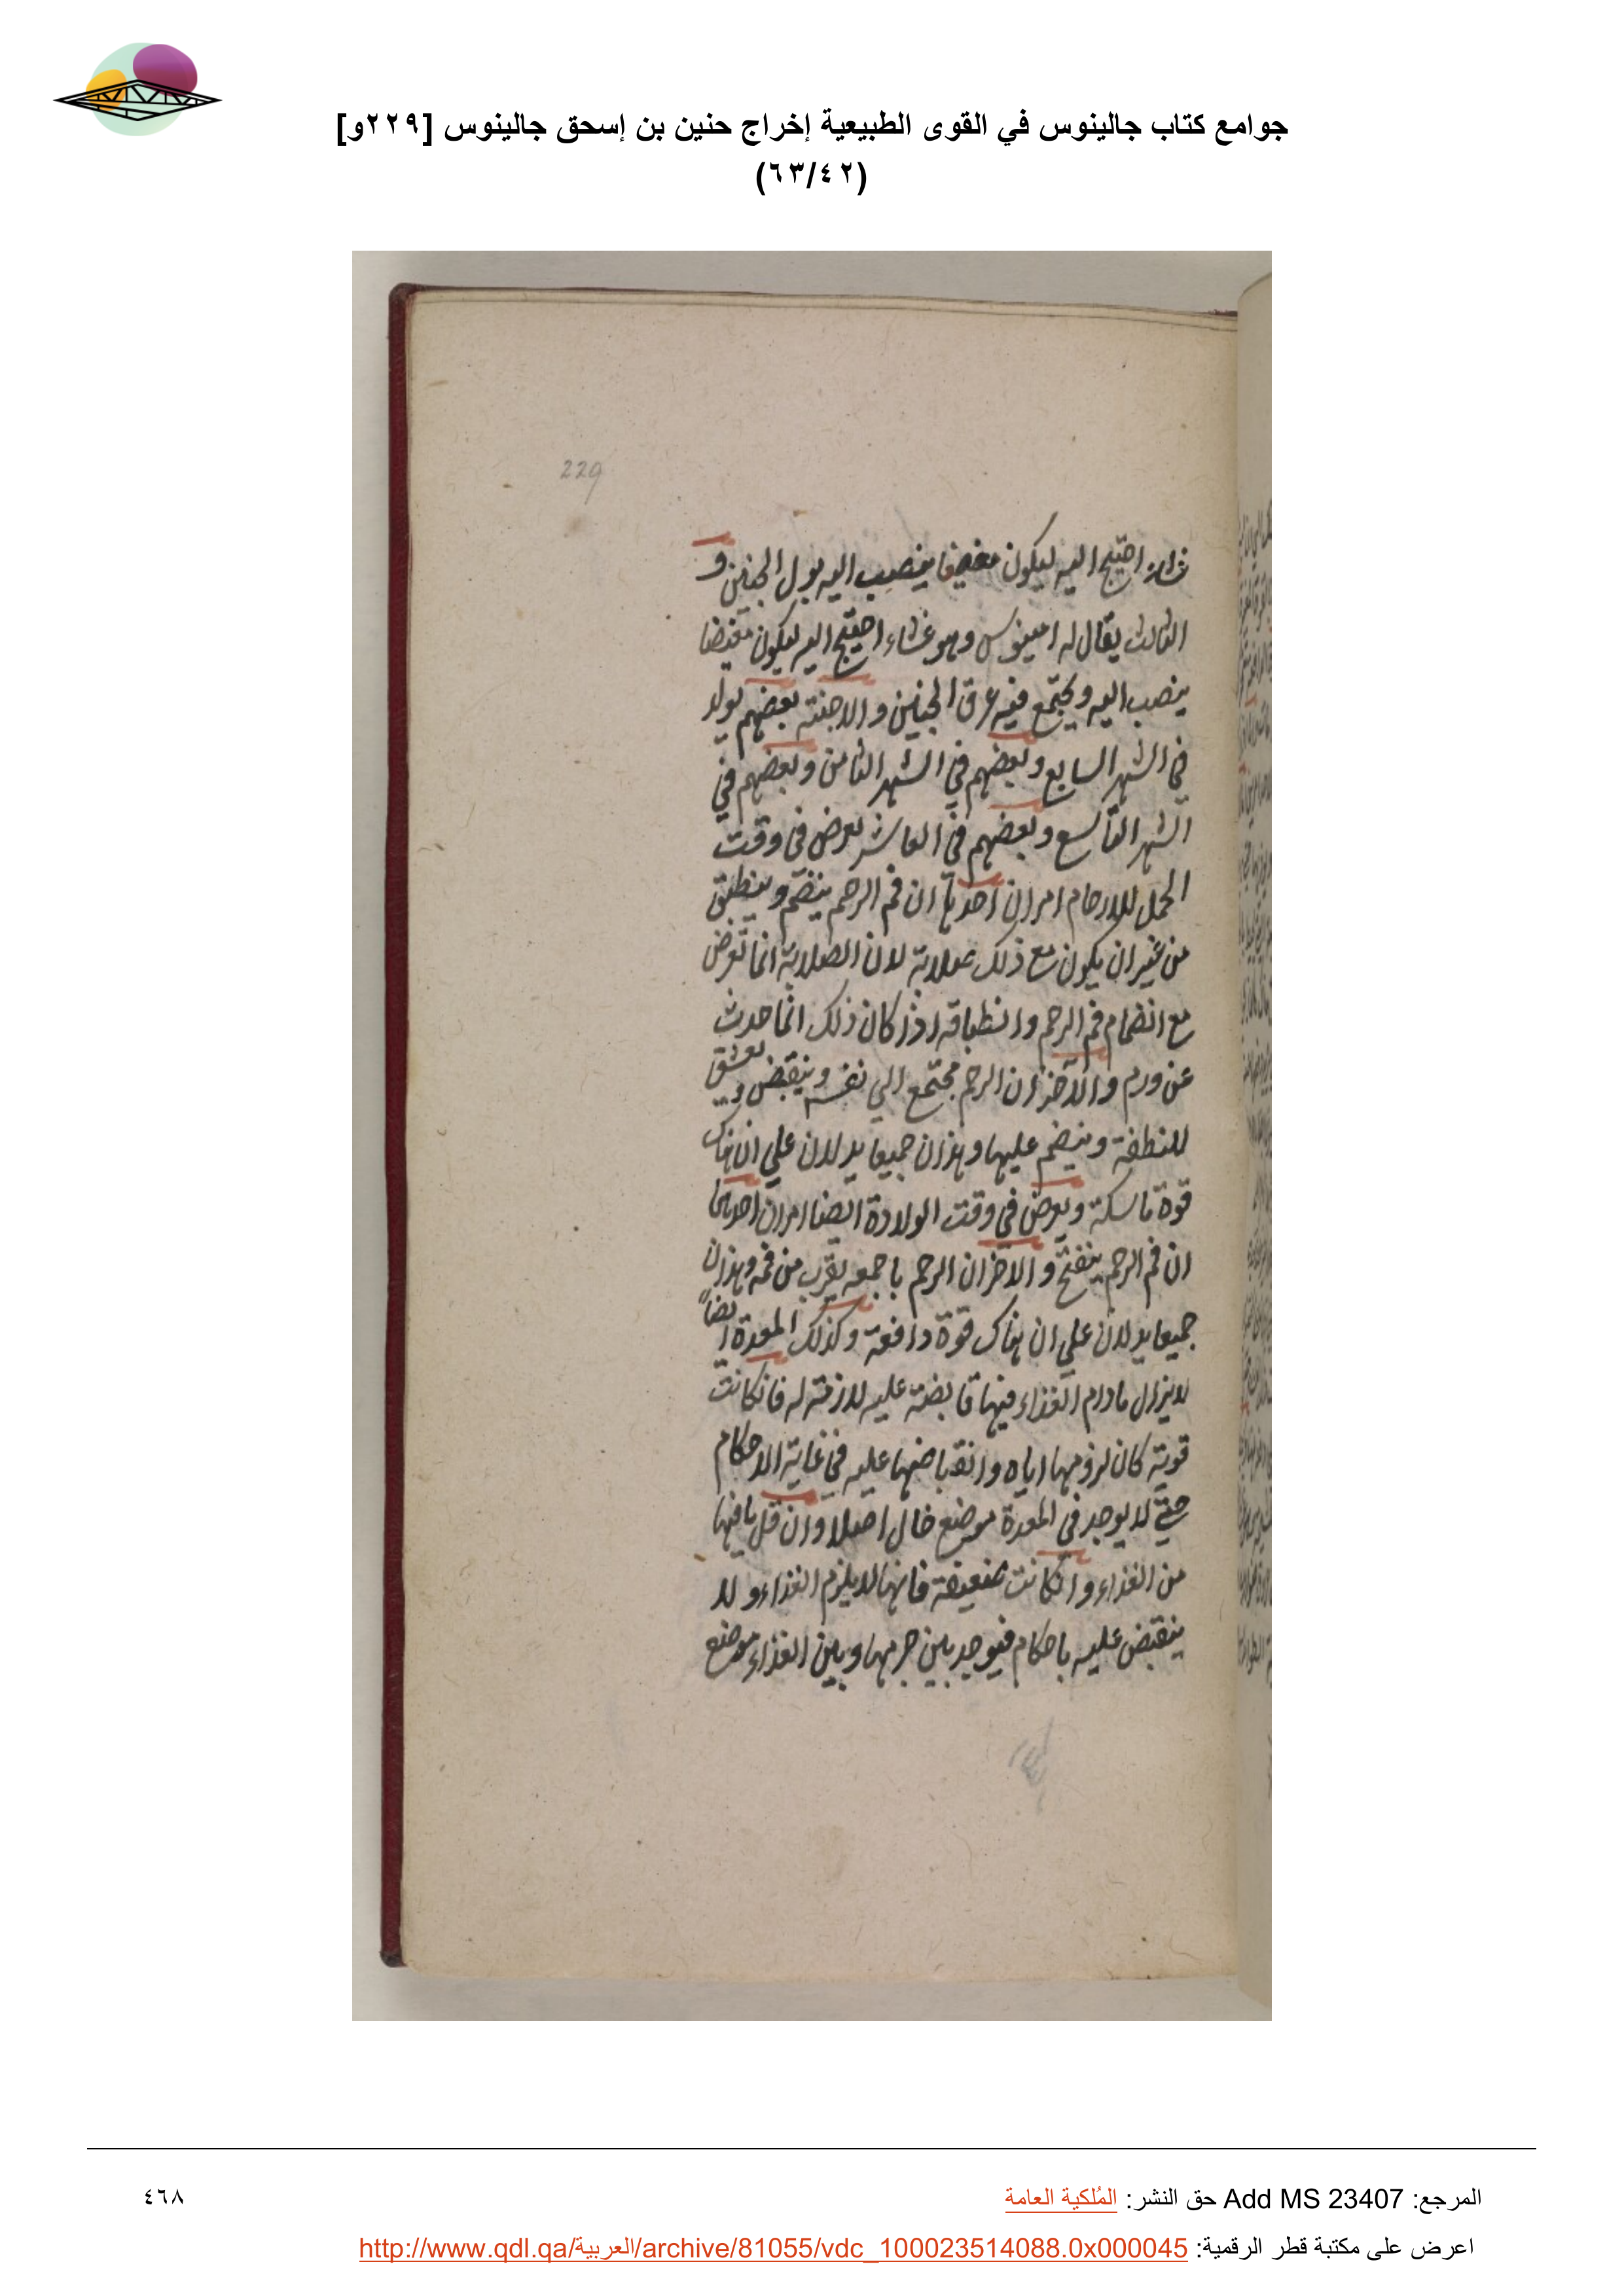 جوامع كتاب جالينوس في القوى الطبيعية إخراج حنين بن إسحق جالينوس [٢٢٩و]
(٦٣/٤٢)
229
احتيج اليه ليكون مغيضا ينصب اليه بول الجنين و
الثالث يقال له امنيوس وهو غشاء احتيج اليه ليكون مغيضا
ينصب اليه ويجتمع فيه عرق الجنين والاجنة بعضهم يولد
في الشهر السابع وبعضهم في الشهر الثامن وبعضهم في
الشهر التاسع وبعضهم في العاشر يعرض في وقت
الحمل للارحام امران احدها ان فم الرحم ينضم وينطبق
من غير ان يكون مع ذلك صلابة لان الصلابة انما تعرض
مع انضمام فم الرحم وانطباقه اذا كان ذلك انما حدث
عن ورم والآخر ان الرحم مجتمع الي نفسه وينقبض و
للنطفة وينضم عليها وهذان جميعا يدلان علي ان هناك
قوة ماسكة ويعرض في وقت الولادة ايضا امران احدهما
ان فم الرحم ينفتح والاخر ان الرحم باجمعه يقرب من فمه وهذان
جميعا يدلان علي ان هناك قوة دافعة وكذلك المعدة ايضاً
لا يزال مادام الغذاء فيها قابضة عليه لازمة له فان كانت
قوية كان لزومها اياه وانقباضها عليه في غاية الاحكام
حتي لا يوجد في المعدة موضع خال اصلا وان قل ما فيها
من الغذاء وان كانت ضعيفة فانها لا يلزم الغذاء ولا
ينقبض عليه باحكام فيوجد بين جرمها وبين الغذاء موضع
المرجع: Add MS 23407 حق النشر: المُلكية العامة
٤٦٨
اعرض على مكتبة قطر الرقمية: http://www.qdl.qa/العربية/archive/81055/vdc_100023514088.0x000045